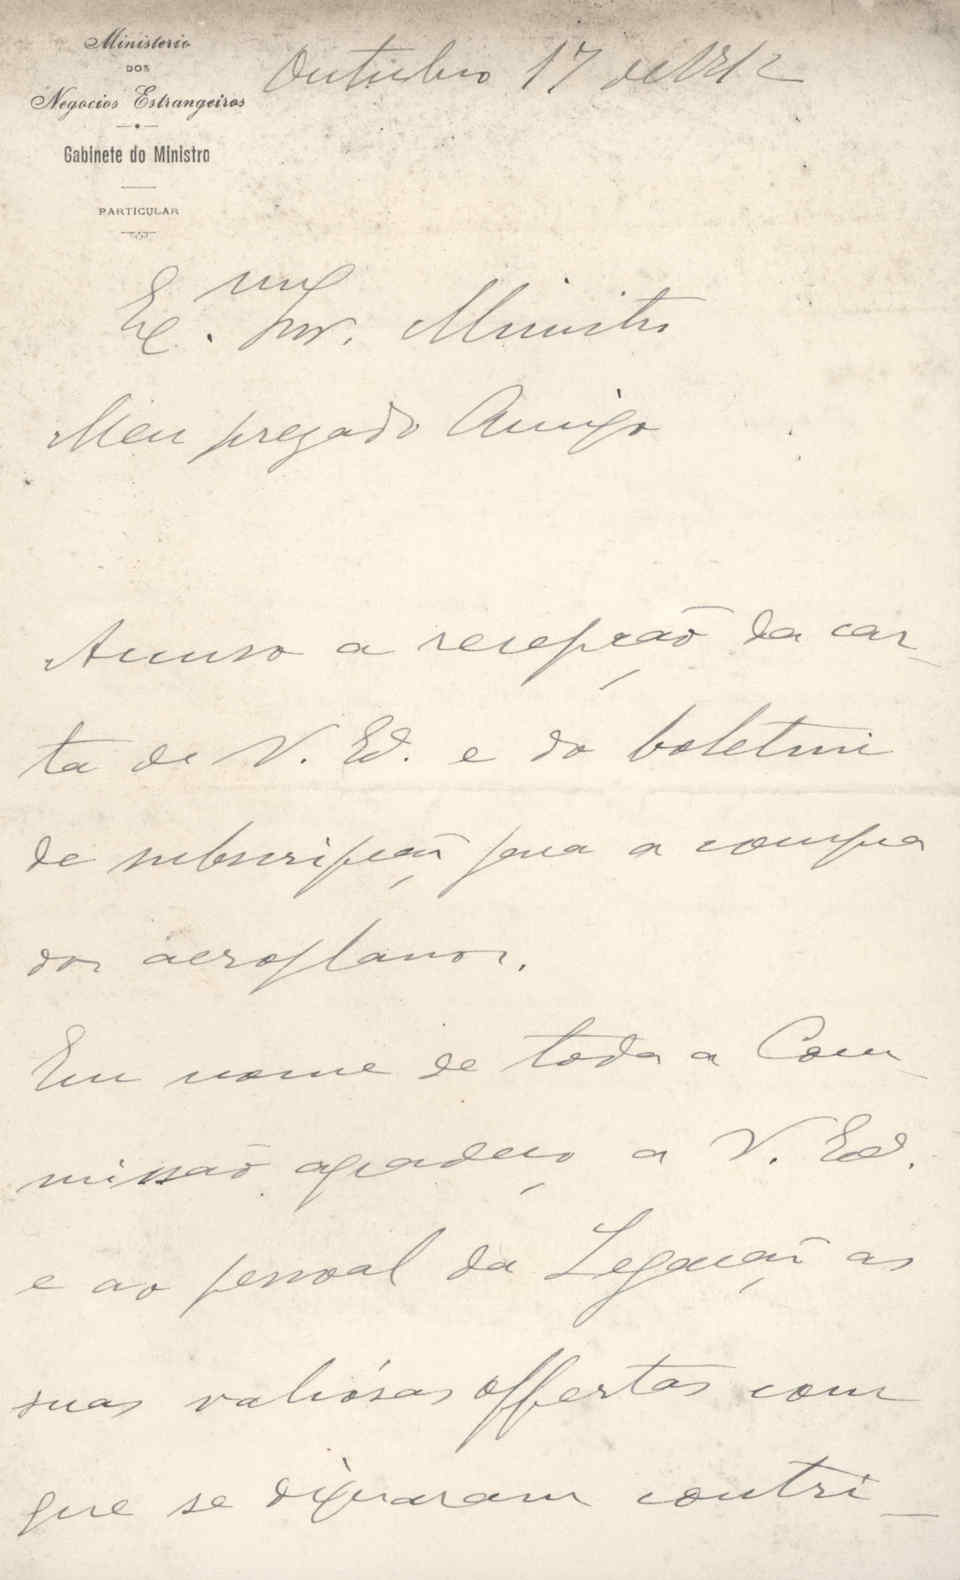 Ministerio
DOS
Negocios Estrangeiros
Gabinete do Ministro
PARTICULAR
Outubro 17 de 1912
Exmo. Snr. Ministro
Meu prezado Amigo
Accuso a recepção da car-
ta de V. Exª. e do boletim
de subscripção para a compra
dos aeroplanos.
Em nome de toda a Com-
missão agradeço a V. Exª.
e ao pessoal da Legação as
suas valiósas offertas com
que se dignaram contri-